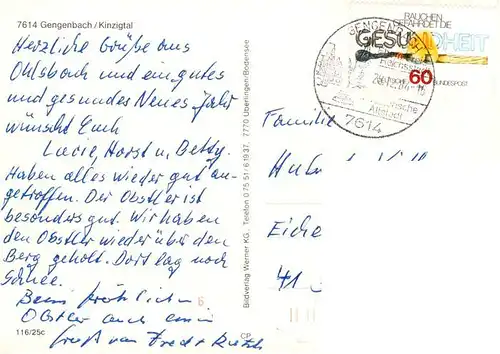 7614 Gengenbach/Kinzigtal
Herzliche Grüße aus
Ohlsbach und ein gutes
und gesundes Neues Jahr
wünscht Euch
Lucie, Horst u. Betty.
Haben alles wieder gut an-
getroffen. Der Obstler ist
besonders gut. Wir haben
den Obstler wieder über den
Berg geholt. Dort lag noch
Schnee.
Beim fröhlichen
Obstler auch ein
Gruß von Fred +
116/25c
Bildverlag Werner KG., Telefon 0 75 51/6 19 37, 7770 Überlingen/Bodensee
CP
6
GENGENBACH
Altstadt
7614
RAUCHEN
GEFÄHRDET DIE
GESUNDHEIT
60
BUNDESPOST
Familie
Eiche
41